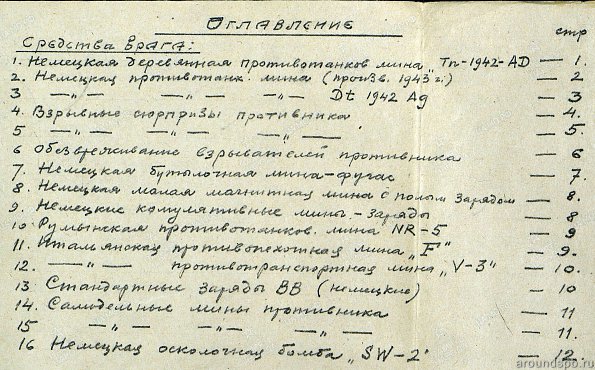 Оглавление
стр
Средства врага:
1. Немецкая деревянная противотанков. мина „Тп-1942-АD — 1.
2. Немецкая противотанк. мина (произв. 1943 г.) — 2
3 —"— —"— —"— Dt 1942 Ag — 3
4. Взрывные сюрпризы противника — 4.
5 —"— —"— —"— — 5.
6 Обезвреживание взрывателей противника — 6
7. Немецкая бутылочная мина-фугас — 7.
8. Немецкая малая магнитная мина с полым зарядом — 8.
9. Немецкие комулятивные мины.-заряды — 8
10. Румынская противотанков. мина NR-5 — 9
11. Итальянская противопехотная мина „F" — 9.
12. —"— противотранспортная мина „V-3" — 10.
13 Стандартные заряды ВВ (немецкие) — 10
14. Самодельные мины противника — 11
15 —"— —"— —"— — 11.
16 Немецкая осколочная бомба „SW-2" — 12.
aroundspb.ru